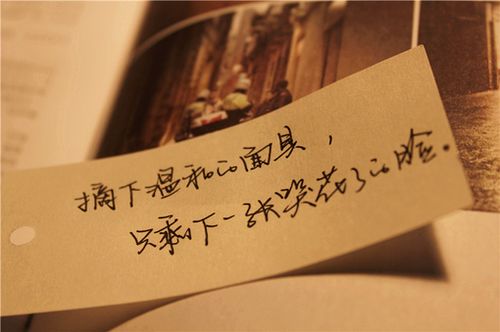 摘下温和的面具,
只剩下一张哭花了的脸.